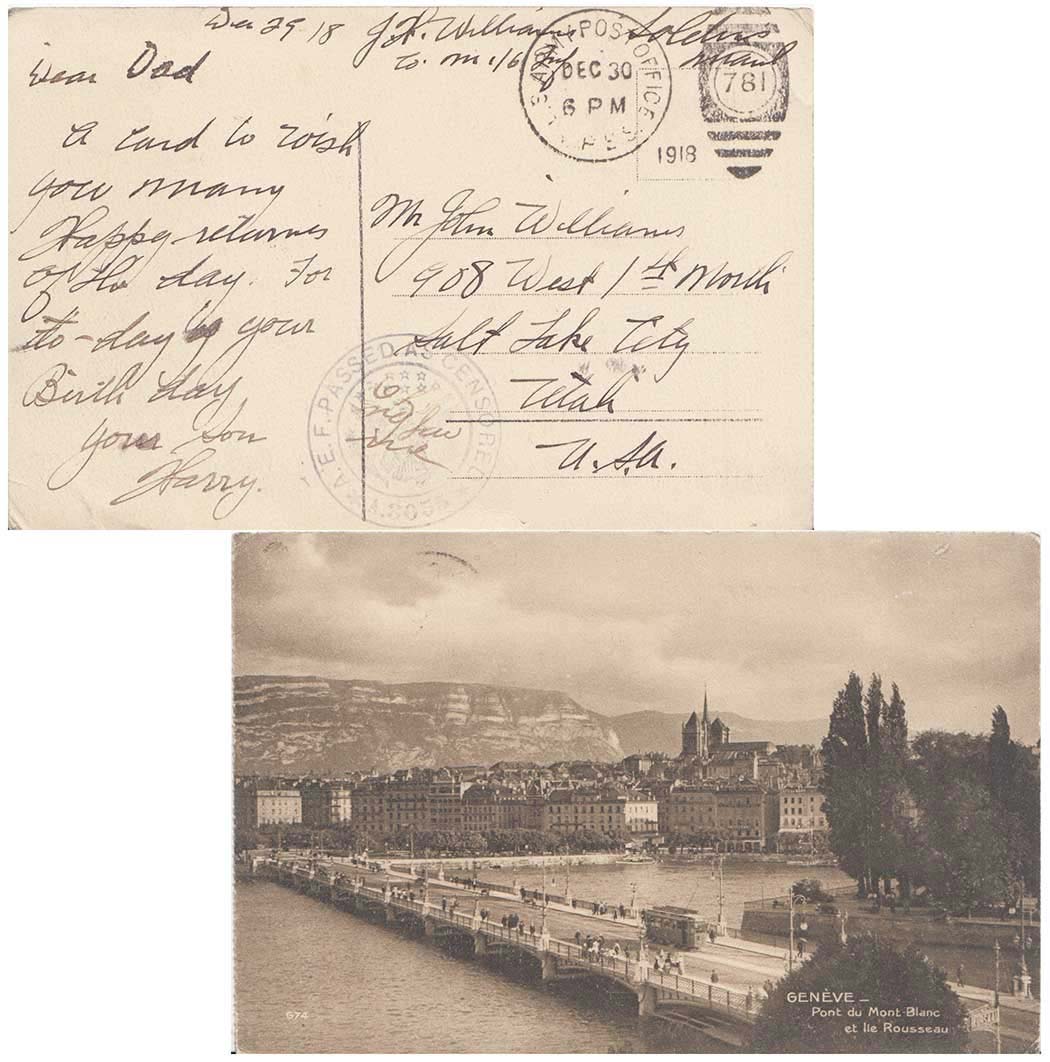 Dec 29 18
J. H. Williams Soldiers
Co. M. 116 Inf Mail
Dear Dad
A card to wish
you many
Happy-returnes
of the day. For
to-day is your
Birth day
your son
Harry.
U.S. ARMY POST OFFICE
DEC 30
6 PM
1918
781
Mr John Williams
908 West 1st North
Salt Lake City
Utah
U.S.A.
A.E.F. PASSED AS CENSORED
GENÈVE _
Pont du Mont-Blanc
et Ile Rousseau